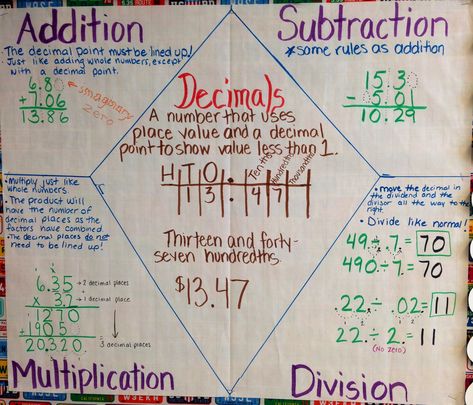 Addition
The decimal point must be lined up!
Just like adding whole numbers, except
with a decimal point.
6.80
+7.06
13.86
imaginary
zero
Subtraction
*some rules as addition
15.30
- 5.01
10.29
Decimals
A number that uses
place value and a decimal
point to show value less than 1.
H T O . Tenths Hundredths Thousandths
1 3 . 4 7
Thirteen and forty-
seven hundredths
$13.47
• Multiply just like
whole numbers.
• The product will
have the number of
decimal places as the
factors have combined.
• The decimal places do not
need to be lined up!
6.35 → 2 decimal places
x 3.2 → 1 decimal place
1270
+1905
20.320 3 decimal places
Multiplication
• move the decimal in
the dividend and the
divisor all the way to the
right.
• Divide like normal!
49. ÷ .7. = 70
490. ÷ 7. = 70
.22. ÷ .02. = 11
22. ÷ 2. = 11
(NO ZERO)
Division